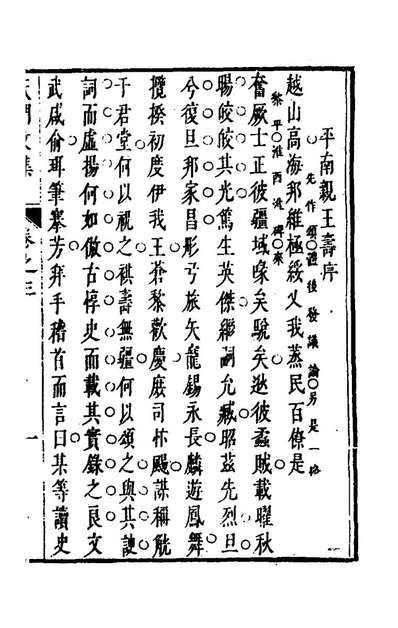 平南親王壽序
先作頌後發議論另是一格
越山高海邦維極綏乂我蒸民百僚是
黎平淮西淝碑來
奮厥士正彼疆域喙矣駾矣逖彼蟊賊載曜秋
暘皎皎其光篤生英傑繼嗣允臧昭茲先烈旦
兮復旦邦家昌彤弓旅矢龍錫永長麟遊鳳舞
攬揆初度伊我王蒼黎歡慶庶司忭颺謀稱觥
于君堂何以祝之祺壽無疆何以頌之與其諛
詞而虛揚何如倣古惇史而載其實錄之良文
武咸俞珥筆搴芳拜手稽首而言曰某等讀史
天閒文集
卷之三
一